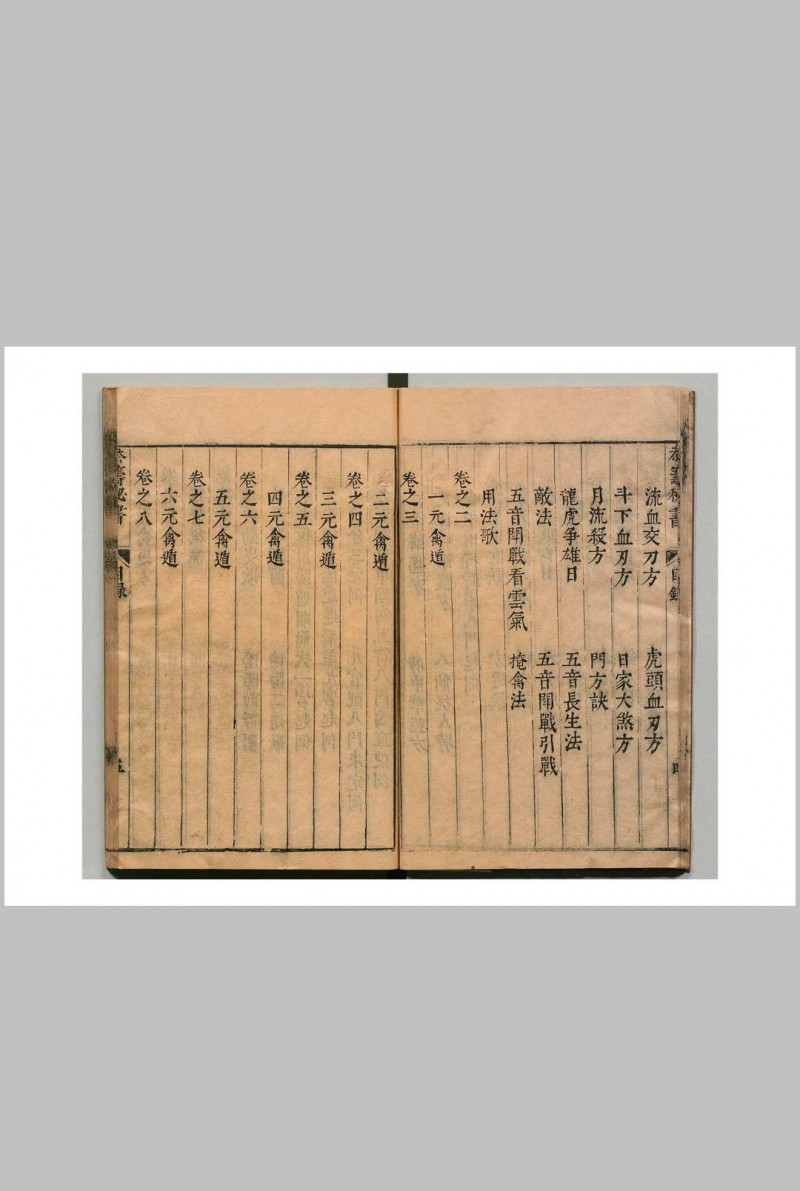 流血交刀方　虎頭血刃方
斗下血刃方　日家大煞方
月流殺方　門方訣
龍虎爭雄日　五音長生法
敵法　五音鬪戰引戰
五音鬪戰看雲氣　掩禽法
用法歌
卷之二
一元禽遁
卷之三
二元禽遁
卷之四
三元禽遁
卷之五
四元禽遁
卷之六
五元禽遁
卷之七
六元禽遁
卷之八
秘書
目錄
五